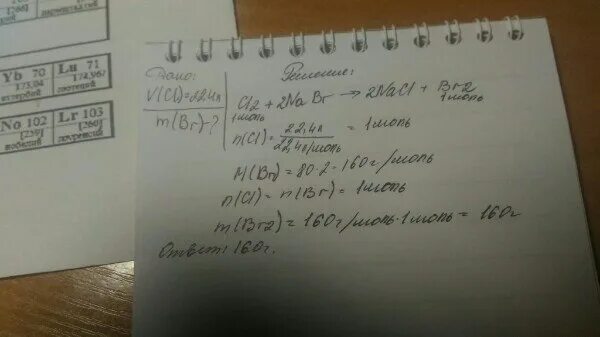 [266]
Yb 70
173,04
иттербий
Lu 71
174,967
лютеций
No 102
[259]
нобелий
Lr 103
[260]
лоуренсий
Дано:
V(Cl)=22,4л
m(Br)-?
Решение:
Cl2 + 2NaBr → 2NaCl + Br2
1моль 1моль
n(Cl)= 22,4л / 22,4л/моль = 1моль
M(Br)=80·2=160г/моль
n(Cl)=n(Br)=1моль
m(Br2)=160г/моль·1моль=160г
Ответ: 160г.